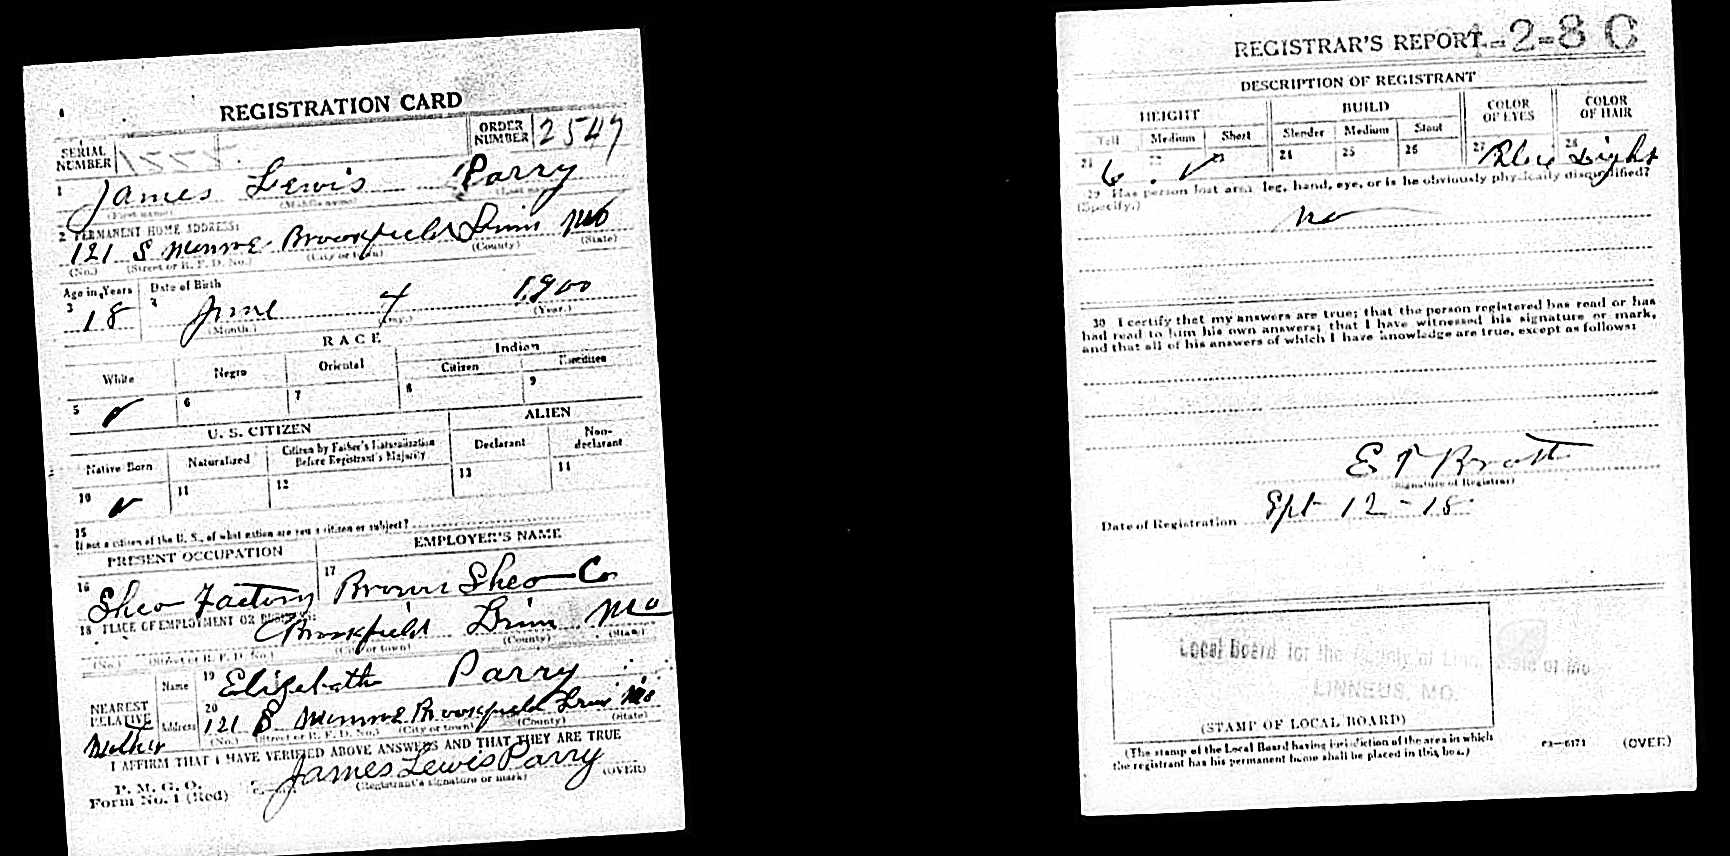 REGISTRATION CARD
SERIAL NUMBER 1555 ORDER NUMBER 2547
1 James Lewis Parry
(First name) (Middle name) (Last name)
2 PERMANENT HOME ADDRESS:
121 S Monroe Brookfield Linn Mo
(No.) (Street or R. F. D. No.) (City or town) (County) (State)
Age in Years Date of Birth
3 18 4 June 4 1900
(Month.) (Day.) (Year.)
RACE
White Negro Oriental Indian
Citizen Noncitizen
5 ✓ 6 7 8 9
U. S. CITIZEN ALIEN
Native Born Naturalized Citizen by Father's Naturalization Before Registrant's Majority Declarant Non-declarant
10 ✓ 11 12 13 14
15
If not a citizen of the U. S., of what nation are you a citizen or subject?
PRESENT OCCUPATION EMPLOYER'S NAME
16 Shoe Factory 17 Brown Shoe Co
18 PLACE OF EMPLOYMENT OR BUSINESS:
Brookfield Linn Mo
(No.) (Street or R. F. D. No.) (City or town) (County) (State)
NEAREST RELATIVE Name 19 Elizabeth Parry
Mother Address 20 121 S Monroe Brookfield Linn Mo
(No.) (Street or R. F. D. No.) (City or town) (County) (State)
I AFFIRM THAT I HAVE VERIFIED ABOVE ANSWERS AND THAT THEY ARE TRUE
P. M. G. O.
Form No. 1 (Red) James Lewis Parry
(Registrant's signature or mark) (OVER)
REGISTRAR'S REPORT -2-8 C
DESCRIPTION OF REGISTRANT
HEIGHT BUILD COLOR OF EYES COLOR OF HAIR
Tall Medium Short Slender Medium Stout
21 6 22 ✓ 23 24 25 26 27 Blue 28 Light
29 Has person lost arm, leg, hand, eye, or is he obviously physically disqualified?
(Specify.)
no
30 I certify that my answers are true; that the person registered has read or has
had read to him his own answers; that I have witnessed his signature or mark,
and that all of his answers of which I have knowledge are true, except as follows:
E T
(Signature of Registrar)
Date of Registration Sept 12-18
Local Board for the County of Linn, State of Mo
LINNEUS, MO.
(STAMP OF LOCAL BOARD)
(The stamp of the Local Board having jurisdiction of the area in which
the registrant has his permanent home shall be placed in this box.)
03—6171 (OVER)